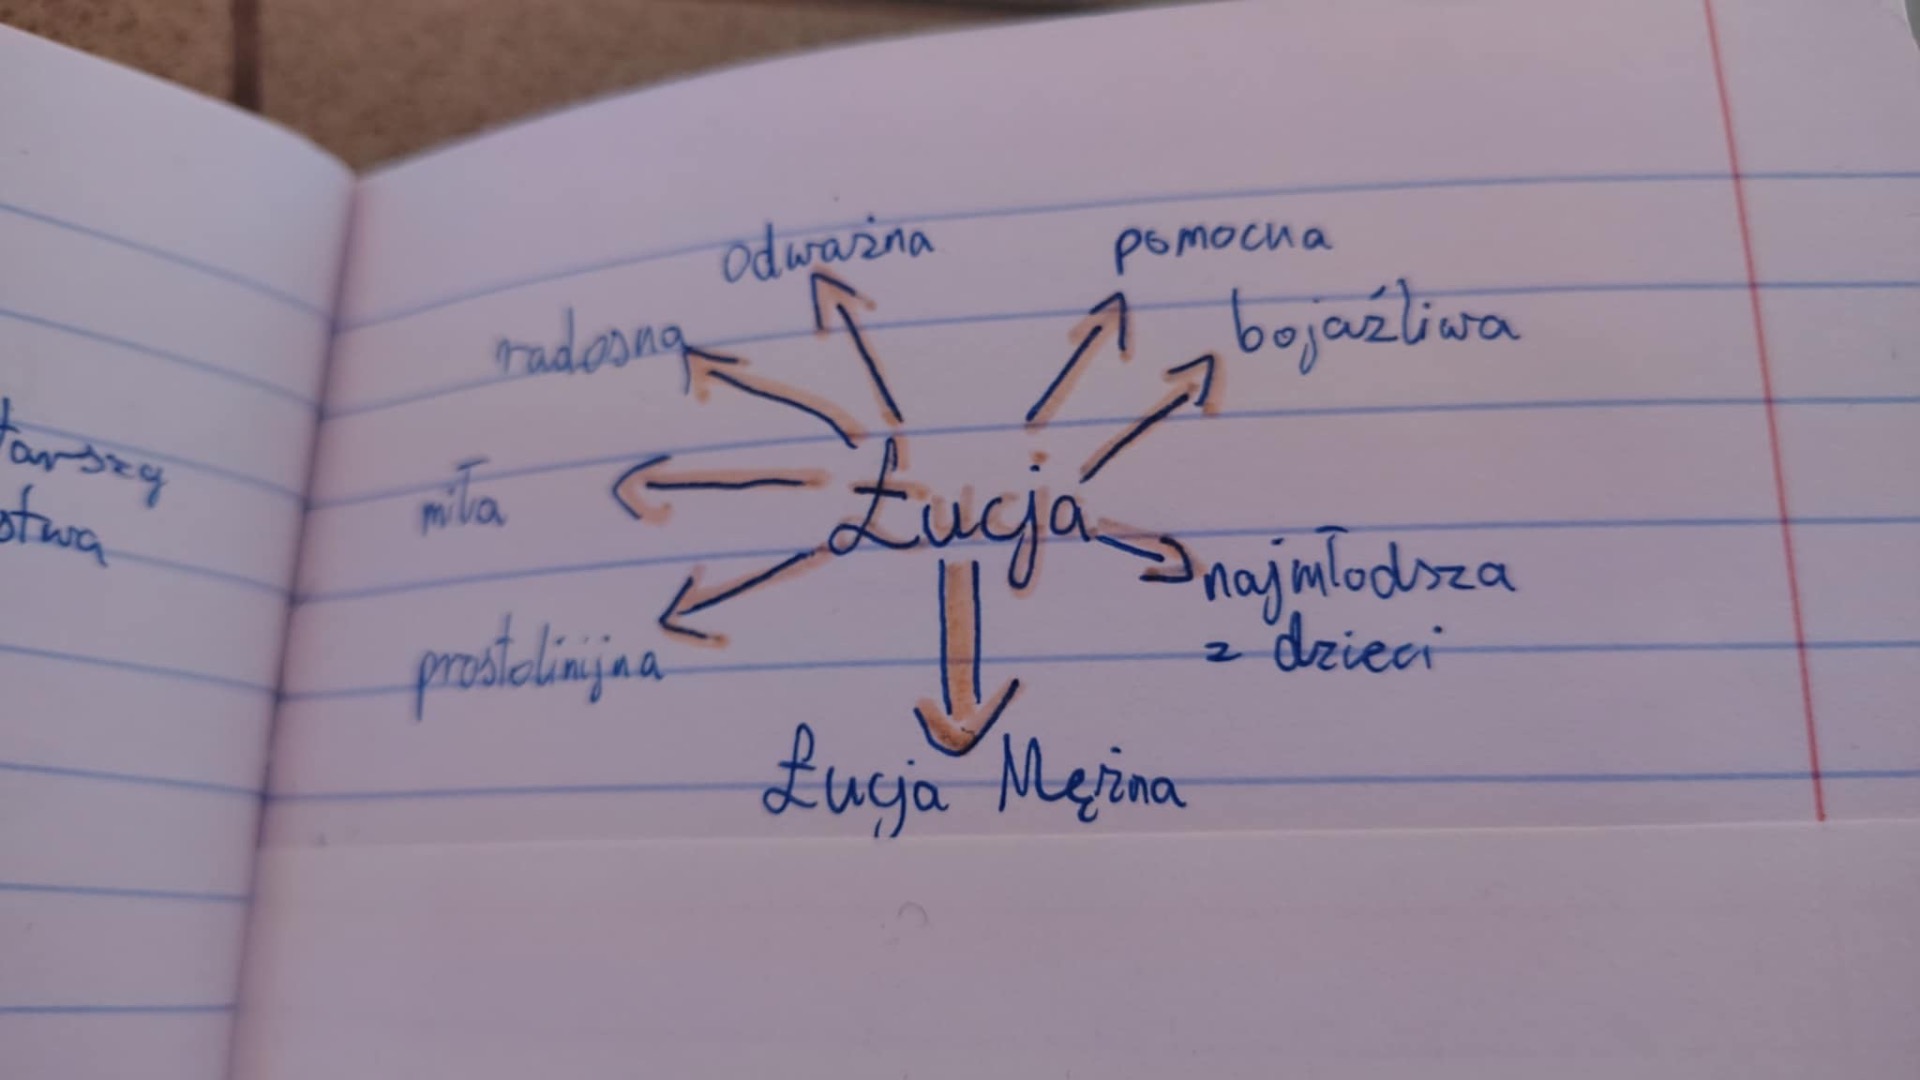 odważna
pomocna
radosna
bojaźliwa
miła
Łucja
najmłodsza
z dzieci
prostolinijna
Łucja Mężna